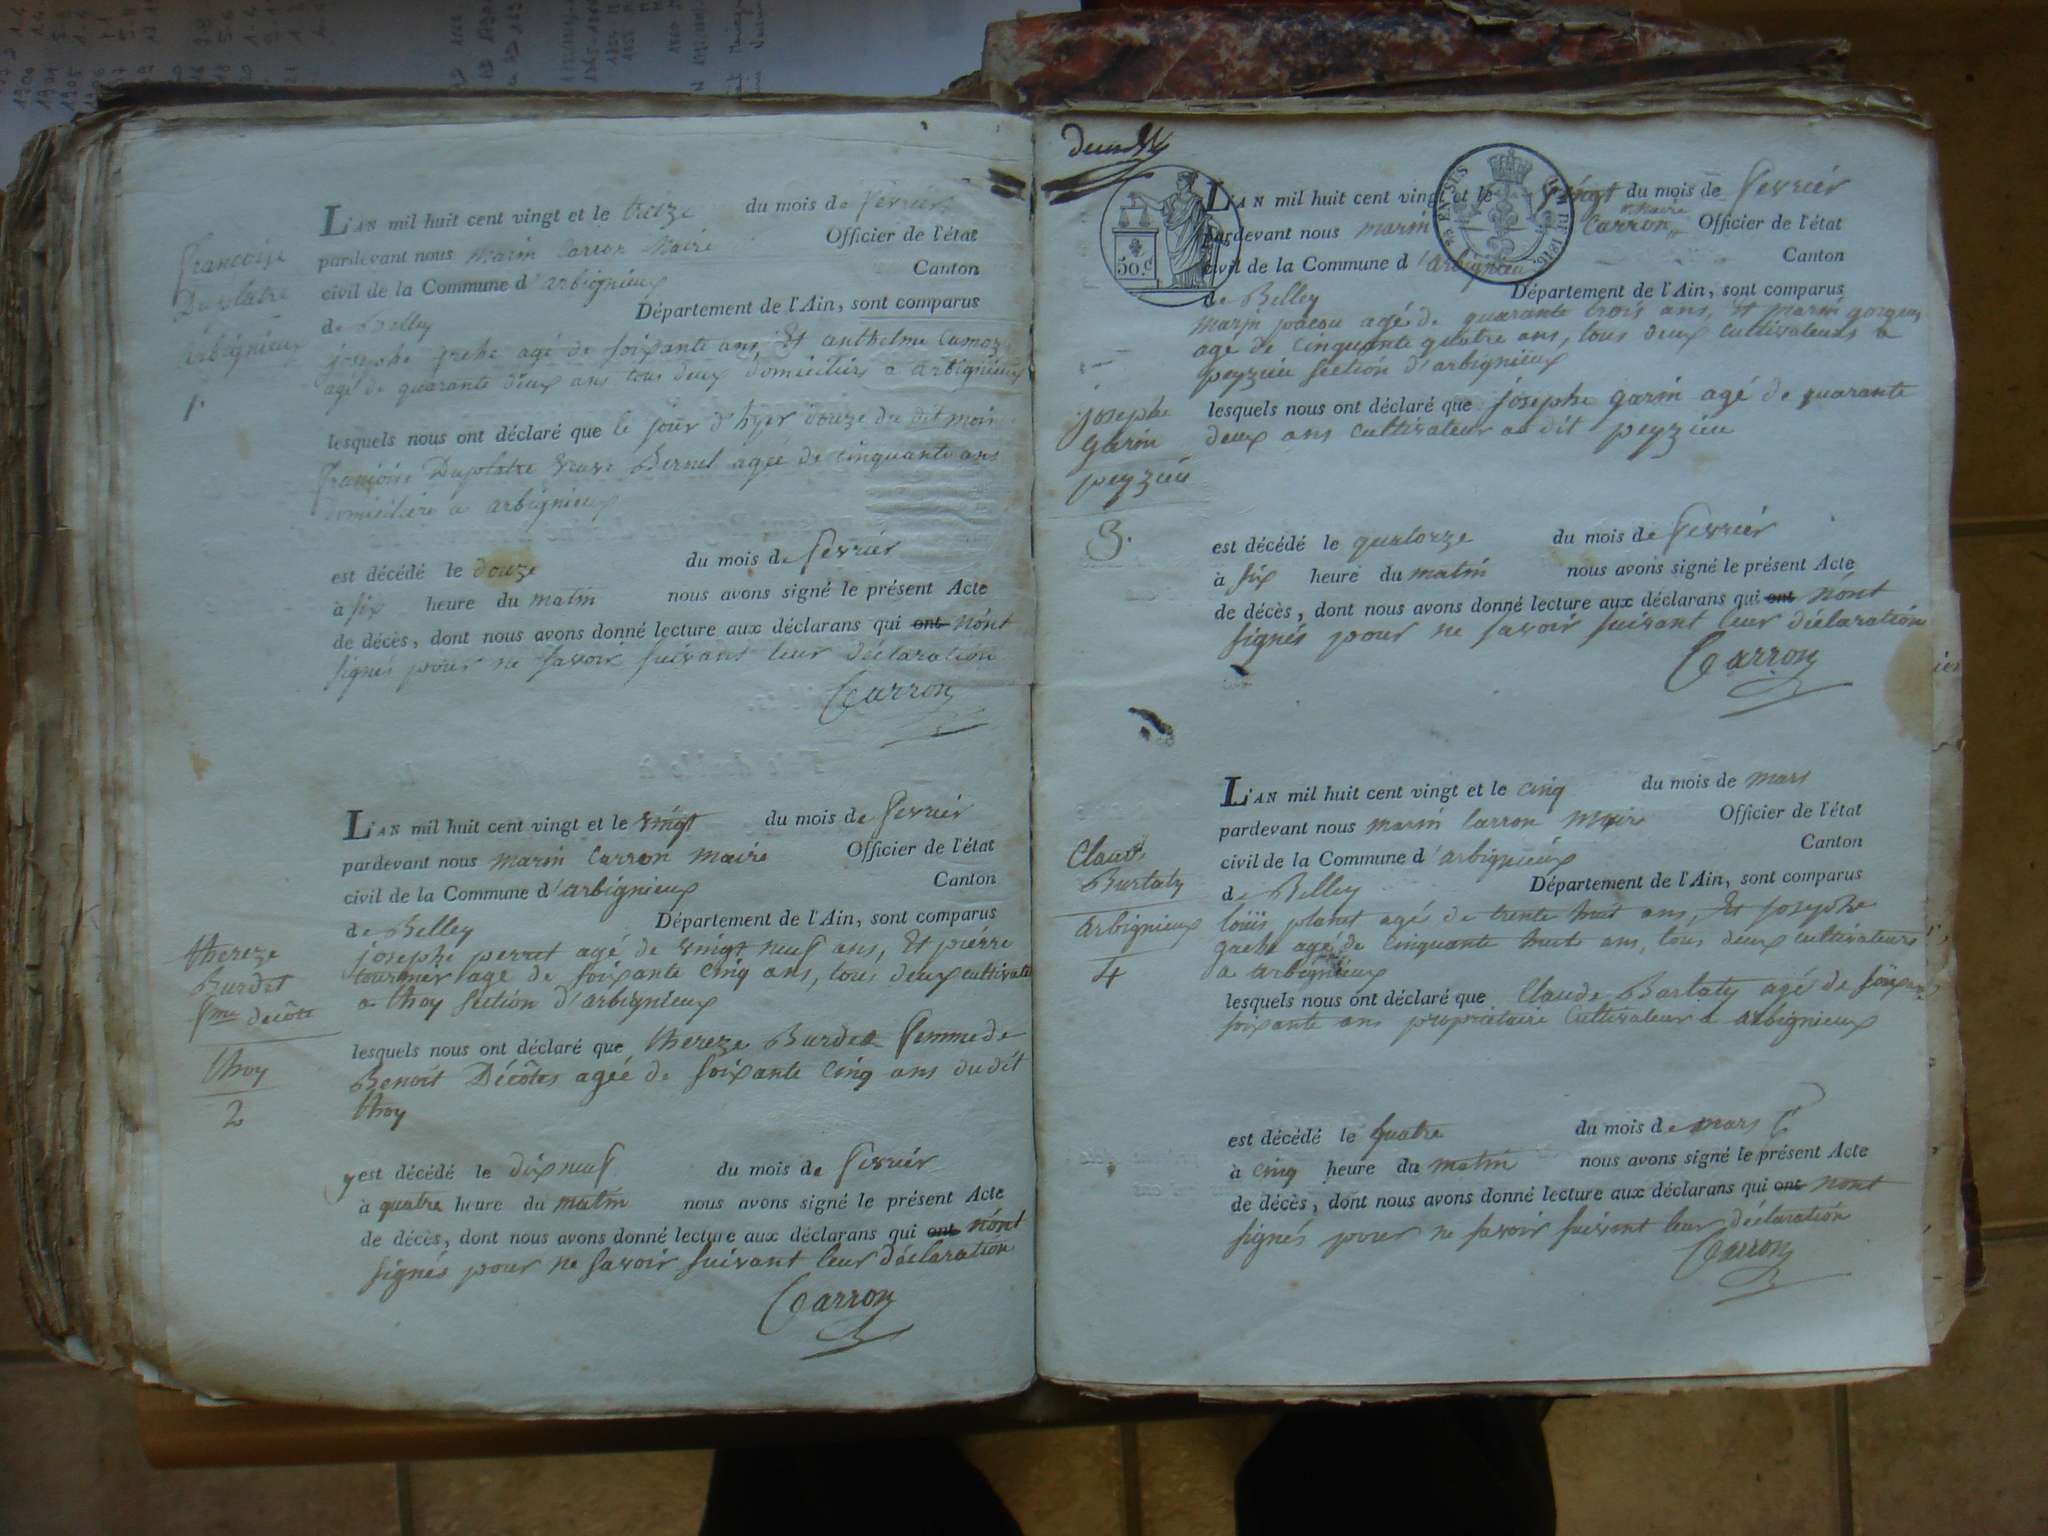 françoise
Duplatre
arbignieux
1.
L'AN mil huit cent vingt et le treize du mois de fevrier
pardevant nous marin Carron Maire Officier de l'état
civil de la Commune d'arbignieux Canton
de Belley Département de l'Ain, sont comparus
josephe agé de soixante ans, Et anthelme
agé de quarante deux ans tous deux domiciliés a arbignieux
lesquels nous ont déclaré que le jour d'hyer douze du dit mois
françoise Duplatre veuve agée de cinquante ans
domiciliéé a arbignieux
est décédé le douze du mois de fevrier
à six heure du matin nous avons signé le présent Acte
de décès, dont nous avons donné lecture aux déclarans qui ont n'ont
signés pour ne savoir suivant leur déclaration
Carron
thereze
Burdet
fme decôte
thoy
2
L'AN mil huit cent vingt et le vingt du mois de fevrier
pardevant nous marin Carron maire Officier de l'état
civil de la Commune d'arbignieux Canton
de Belley Département de l'Ain, sont comparus
josephe perret agé de vingt neuf ans, Et piérre
tournier agé de soixante cinq ans, tous deux cultivate
a thoy section d'arbignieux
lesquels nous ont déclaré que thereze Burdet femme de
Benoit Décôtes agéé de soixante cinq ans du dit
thoy
y est décédé le dix neuf du mois de fevrier
à quatre heure du matin nous avons signé le présent Acte
de décès, dont nous avons donné lecture aux déclarans qui ont n'ont
signés pour ne savoir suivant leur déclaration
Carron
50.c
josephe
garin
peyzieu
3.
L'AN mil huit cent vingt et le vingt du mois de fevrier
pardevant nous marin Carron maire Officier de l'état
civil de la Commune d'arbignieu Canton
de Belley Département de l'Ain, sont comparus
marin agé de quarante trois ans, Et marin
agé de cinquante quatre ans, tous deux cultivateurs a
peyzieu section d'arbignieux
lesquels nous ont déclaré que josephe garin agé de quarante
deux ans cultivateur au dit peyzieu
est décédé le quatorze du mois de fevrier
à six heure du matin nous avons signé le présent Acte
de décès, dont nous avons donné lecture aux déclarans qui ont n'ont
signés pour ne savoir suivant leur déclaration
Carron
Claude
Burtaty
arbignieux
4
L'AN mil huit cent vingt et le cinq du mois de mars
pardevant nous marin Carron Maire Officier de l'état
civil de la Commune d'arbignieux Canton
de Belley Département de l'Ain, sont comparus
louis planet agés de trente huit ans, Et josephe
agé de cinquante huit ans, tous deux cultivateurs
a arbignieux
lesquels nous ont déclaré que Claude Bartaty agé de
soixante ans propriétaire Cultivateur a arbignieux
est décédé le quatre du mois de mars
à cinq heure du matin nous avons signé le présent Acte
de décès, dont nous avons donné lecture aux déclarans qui ont nont
signés pour ne savoir suivant leur déclaration
Carron